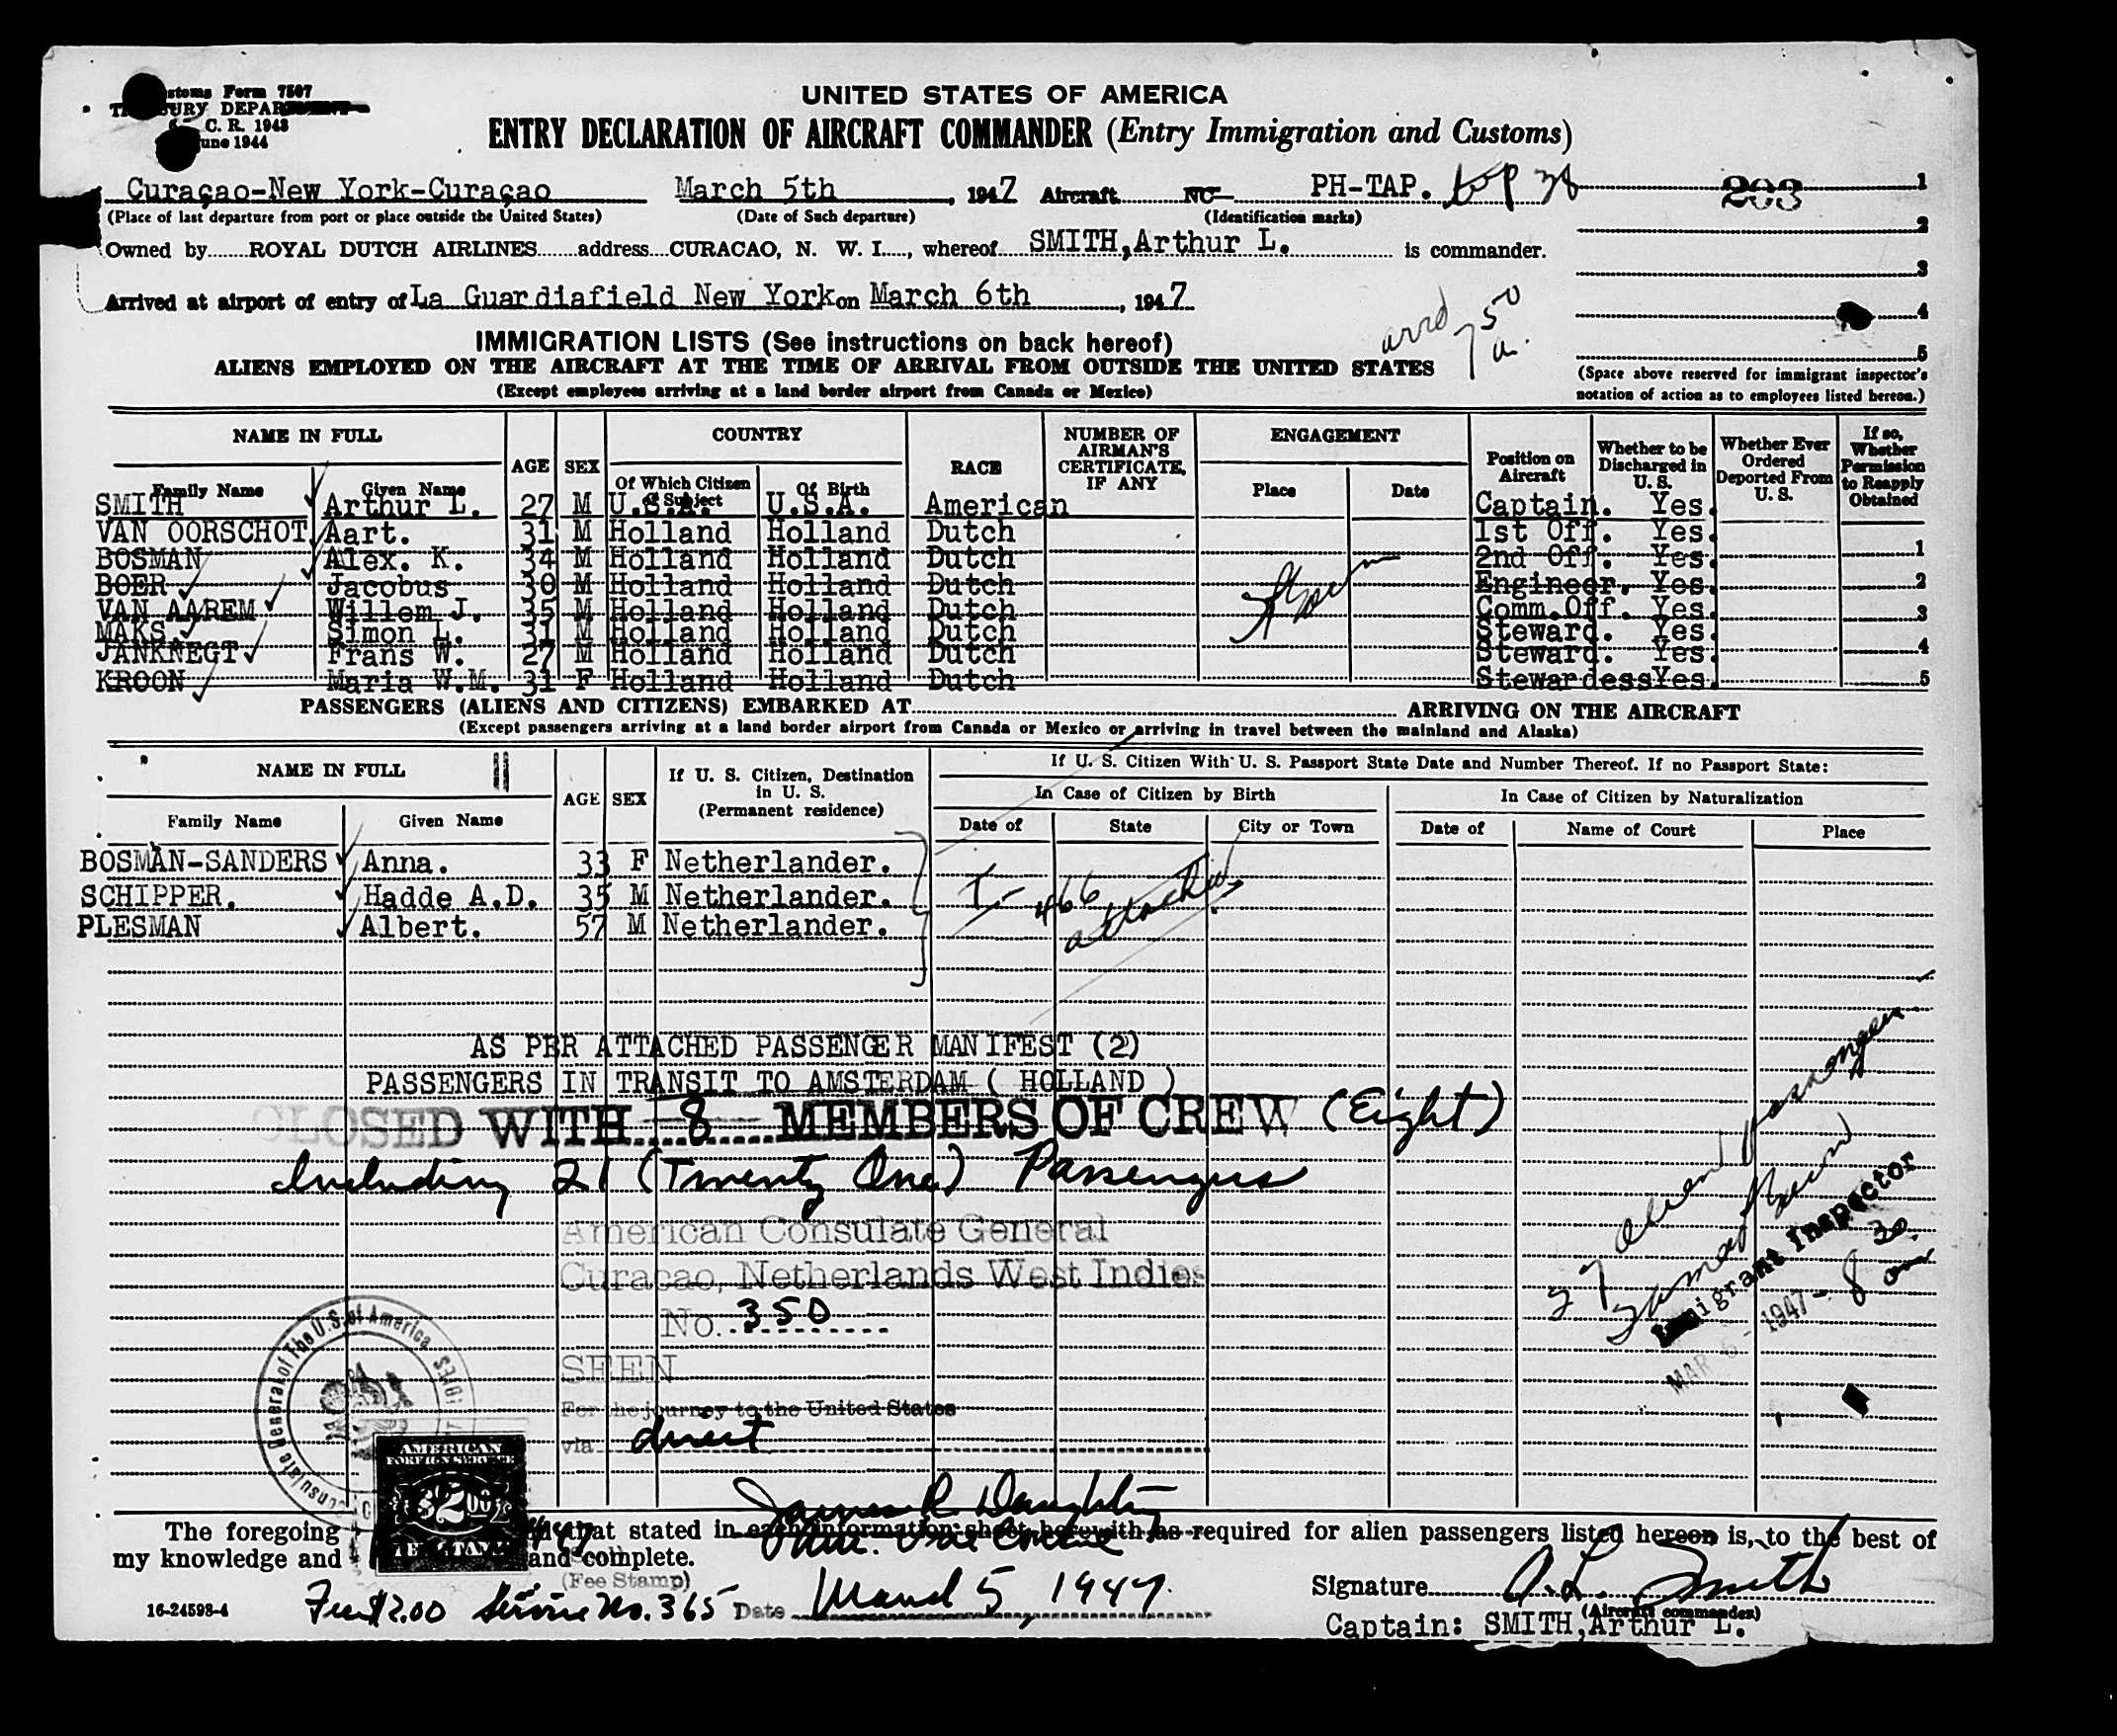 Customs Form 7507
TREASURY DEPARTMENT
C. R. 1943
June 1944
UNITED STATES OF AMERICA
ENTRY DECLARATION OF AIRCRAFT COMMANDER (Entry Immigration and Customs)
Curaçao-New York-Curaçao March 5th, 1947 Aircraft NC PH-TAP. 203 1
(Place of last departure from port or place outside the United States) (Date of Such departure) (Identification marks)
2
Owned by ROYAL DUTCH AIRLINES address CURACAO, N. W. I., whereof SMITH,Arthur L. is commander.
3
Arrived at airport of entry of La Guardiafield New York on March 6th, 1947
4
arrd 750 a.
5
IMMIGRATION LISTS (See instructions on back hereof)
ALIENS EMPLOYED ON THE AIRCRAFT AT THE TIME OF ARRIVAL FROM OUTSIDE THE UNITED STATES
(Except employees arriving at a land border airport from Canada or Mexico)
(Space above reserved for immigrant inspector's
notation of action as to employees listed hereon.)
NAME IN FULL AGE SEX COUNTRY RACE NUMBER OF AIRMAN'S CERTIFICATE, IF ANY ENGAGEMENT Position on Aircraft Whether to be Discharged in U. S. Whether Ever Ordered Deported From U. S. If so, Whether Permission to Reapply Obtained
Family Name Given Name Of Which Citizen or Subject Of Birth Place Date
SMITH Arthur L. 27 M U.S.A. U.S.A. American Captain. Yes.
VAN OORSCHOT Aart. 31 M Holland Holland Dutch 1st Off. Yes.
BOSMAN Alex. K. 34 M Holland Holland Dutch 2nd Off. Yes. 1
BOER Jacobus 30 M Holland Holland Dutch Engineer. Yes. 2
VAN AAREM Willem J. 35 M Holland Holland Dutch Comm.Off. Yes. 3
MAKS. Simon L. M Holland Holland Dutch Steward. Yes.
JANKNEGT Frans W. 27 M Holland Holland Dutch Steward. Yes. 4
KROON Maria W.M. 31 F Holland Holland Dutch Stewardess Yes. 5
PASSENGERS (ALIENS AND CITIZENS) EMBARKED AT ARRIVING ON THE AIRCRAFT
(Except passengers arriving at a land border airport from Canada or Mexico or arriving in travel between the mainland and Alaska)
NAME IN FULL AGE SEX If U. S. Citizen, Destination in U. S. (Permanent residence) If U. S. Citizen With U. S. Passport State Date and Number Thereof. If no Passport State:
In Case of Citizen by Birth In Case of Citizen by Naturalization
Family Name Given Name Date of State City or Town Date of Name of Court Place
BOSMAN-SANDERS Anna. 33 F Netherlander.
SCHIPPER. Hadde A.D. 35 M Netherlander.
PLESMAN Albert. 57 M Netherlander.
I-466 attached
AS PER ATTACHED PASSENGER MANIFEST (2)
PASSENGERS IN TRANSIT TO AMSTERDAM ( HOLLAND )
CLOSED WITH 8 MEMBERS OF CREW (Eight)
Including 21 (Twenty One) Passengers
21 alien passengers
Immigrant Inspector
MAR 6 - 1947 - 8 30 am
American Consulate General
Curacao, Netherlands West Indies
No. 350
SEEN
For the journey to the United States
via direct
Consulate General of The U.S. of America
AMERICAN
FOREIGN SERVICE
$2.00
FEE STAMP
The foregoing that stated in each information sheet herewith as required for alien passengers listed hereon is, to the best of
my knowledge and and complete.
(Fee Stamp)
Signature A.L. Smith
(Aircraft commander)
16-24598-4 Fee $2.00 Service No. 365 Date March 5, 1947.
Captain: SMITH,Arthur L.